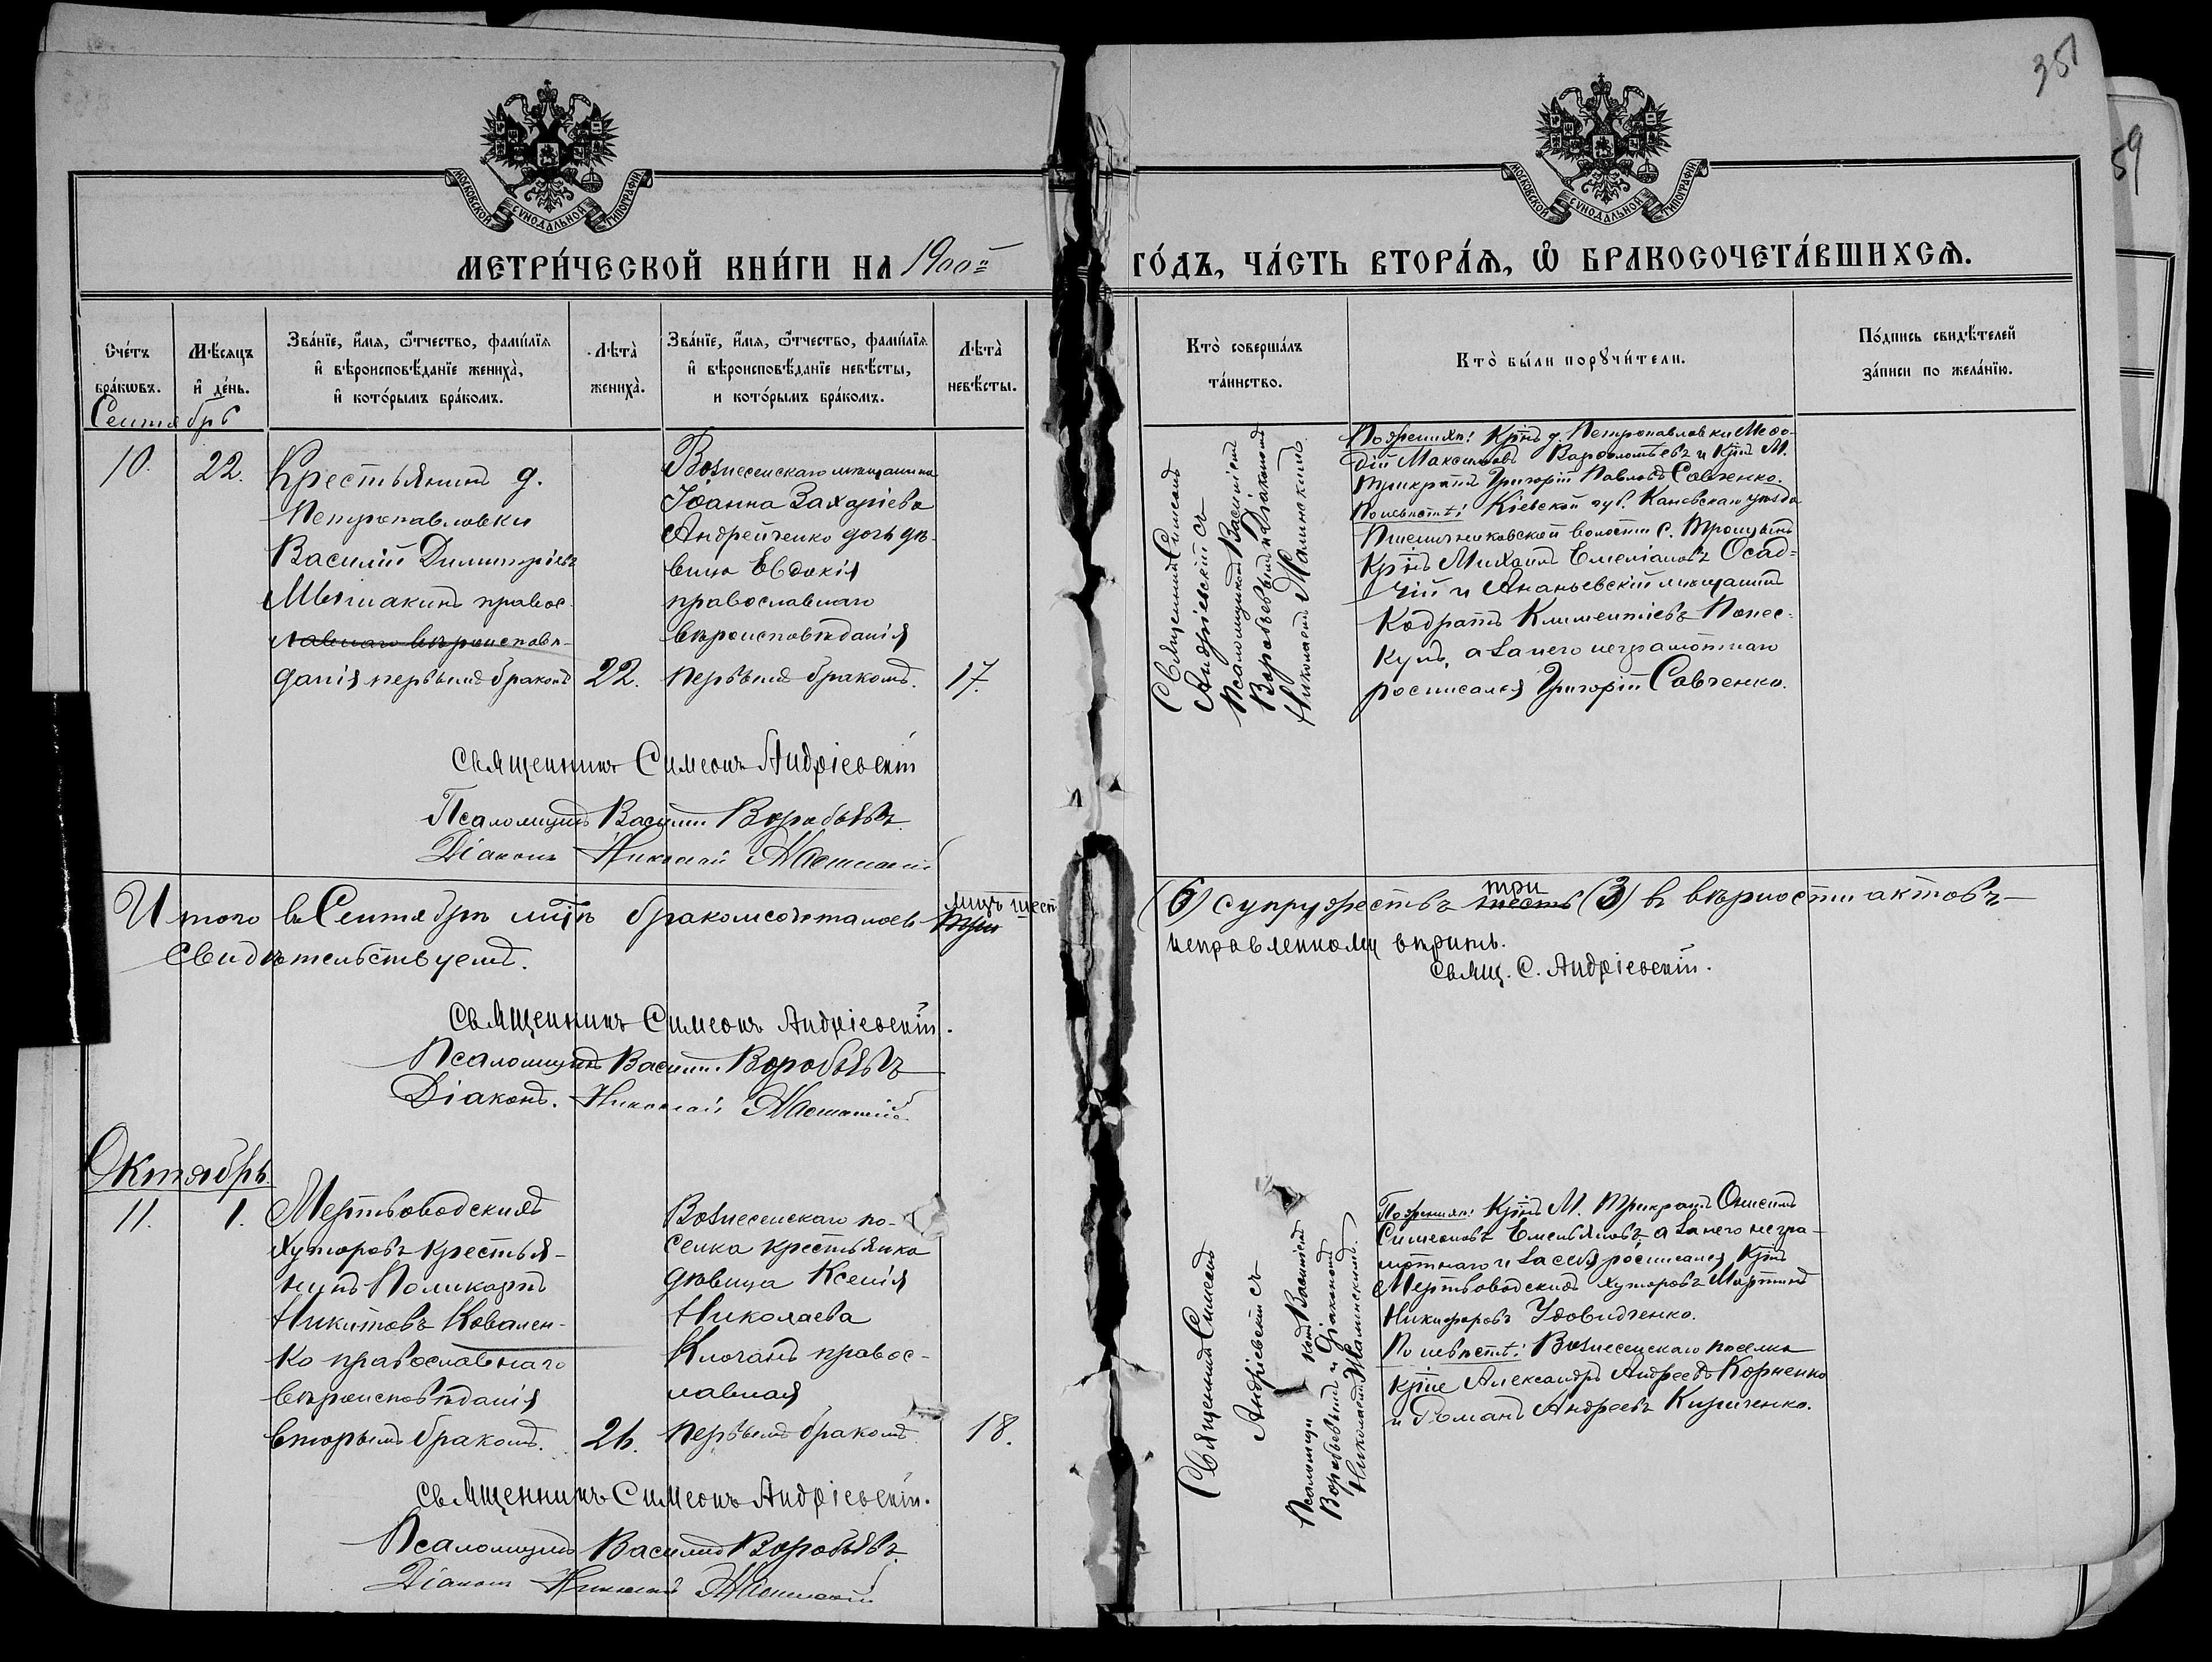 351
59
МОСКОВСКОЙ СУНОДАЛЬНОЙ ТИПОГРАФИИ
МОСКОВСКОЙ СУНОДАЛЬНОЙ ТИПОГРАФИИ
МЕТРИ́ЧЕСКОЙ КНИ́ГИ НА 1900й ГО́ДЪ, ЧА́СТЬ ВТОРА́Ѧ, Ѡ҆ БРАКОСОЧЕТА́ВШИХСѦ.
Счетъ бра́кѡвъ.
Мѣ́сѧцъ и҆ де́нь.
Зва́нїе, и҆́мѧ, ѻ҆́тчество, фами́лїѧ
и҆ вѣроисповѣ́данїе жениха̀,
и҆ кото́рымъ бра́комъ.
Лѣта̀ жениха̀.
Зва́нїе, и҆́мѧ, ѻ҆́тчество, фами́лїѧ
и҆ вѣроисповѣ́данїе невѣ́сты,
и кото́рымъ бра́комъ.
Лѣта̀ невѣ́сты.
Кто̀ соверша́лъ
та́инство.
Кто̀ бы́ли порꙋчи́тели.
По́дпись свидѣ́телей
за́писи по жела́нїю.
Сентябрь
10. 22.
Крестьянинъ д.
Петропавловки
Василій Димитріевъ
Мьшакинъ правос-
лавнаго вѣроисповѣ-
данія первымъ бракомъ 22.
Вознесенскаго мѣщанина
Іоанна Захаріева
Андрейченко дочь дѣ-
вица Евдокія
православнаго
вѣроисповѣданія
первымъ бракомъ. 17.
Священникъ Симеонъ
Андріевскій съ
Псаломщикомъ Василіемъ
Воробьевымъ и Діакономъ
Николаемъ
По женихѣ: Крнъ д. Петропавловки Мефо-
дій Максимовъ Варфоломѣевъ и Крнъ М.
Трикратъ Григорій Павловъ Савченко.
По невѣстѣ: Кіевской губ. Каневскаго уѣзда
Пшеничниковской волости С. Трощына
Крнъ Михаилъ Емеліановъ Осад-
чій и Ананьевскій мѣщанинъ
Кодратъ Климентіевъ Попес-
кулъ, а за него неграмотнаго
росписался Григорій Савченко.
Священникъ Симеонъ Андріевскій
Псаломщикъ Василій Воробьевъ
Діаконъ Николай
Итого въ Сентябрѣ м-цѣ бракомсочеталось три лицъ шесть
(6) супружествъ шесть три (3) въ вѣрности актовъ
свидѣтельствуемъ.
исправленному вѣрить.
Свящ. С. Андріевскій.
Священникъ Симеонъ Андріевскій.
Псаломщикъ Василій Воробьевъ
Діаконъ. Николай
Октябрь
11. 1.
Мертвоводскихъ
хуторовъ крестья-
нинъ Поликарпъ
Никитовъ Ковален-
ко православнаго
вѣроисповѣданія
вторымъ бракомъ. 26.
Вознесенскаго по-
селка крестьянка
дѣвица Ксенія
Николаева
Клочанъ правос-
лавная
первымъ бракомъ 18.
Священникъ Симеонъ
Андріевскій съ
Псаломщикомъ Василіемъ
Воробьевымъ и Діакономъ
Николаемъ
По женихѣ: Крнъ М. Трикратъ Онисимъ
Симеоновъ Емельяновъ, а за него негра-
мотнаго и за себя росписался Крнъ
Мертвоводскихъ хуторовъ Мартинъ
Никифоровъ Удовидченко.
По невѣстѣ: Вознесенскаго поселка
кр-не Александръ Андреевъ Корненко
и Романъ Андреевъ Кириченко.
Священникъ Симеонъ Андріевскій.
Псаломщикъ Василій Воробьевъ.
Діаконъ Николай